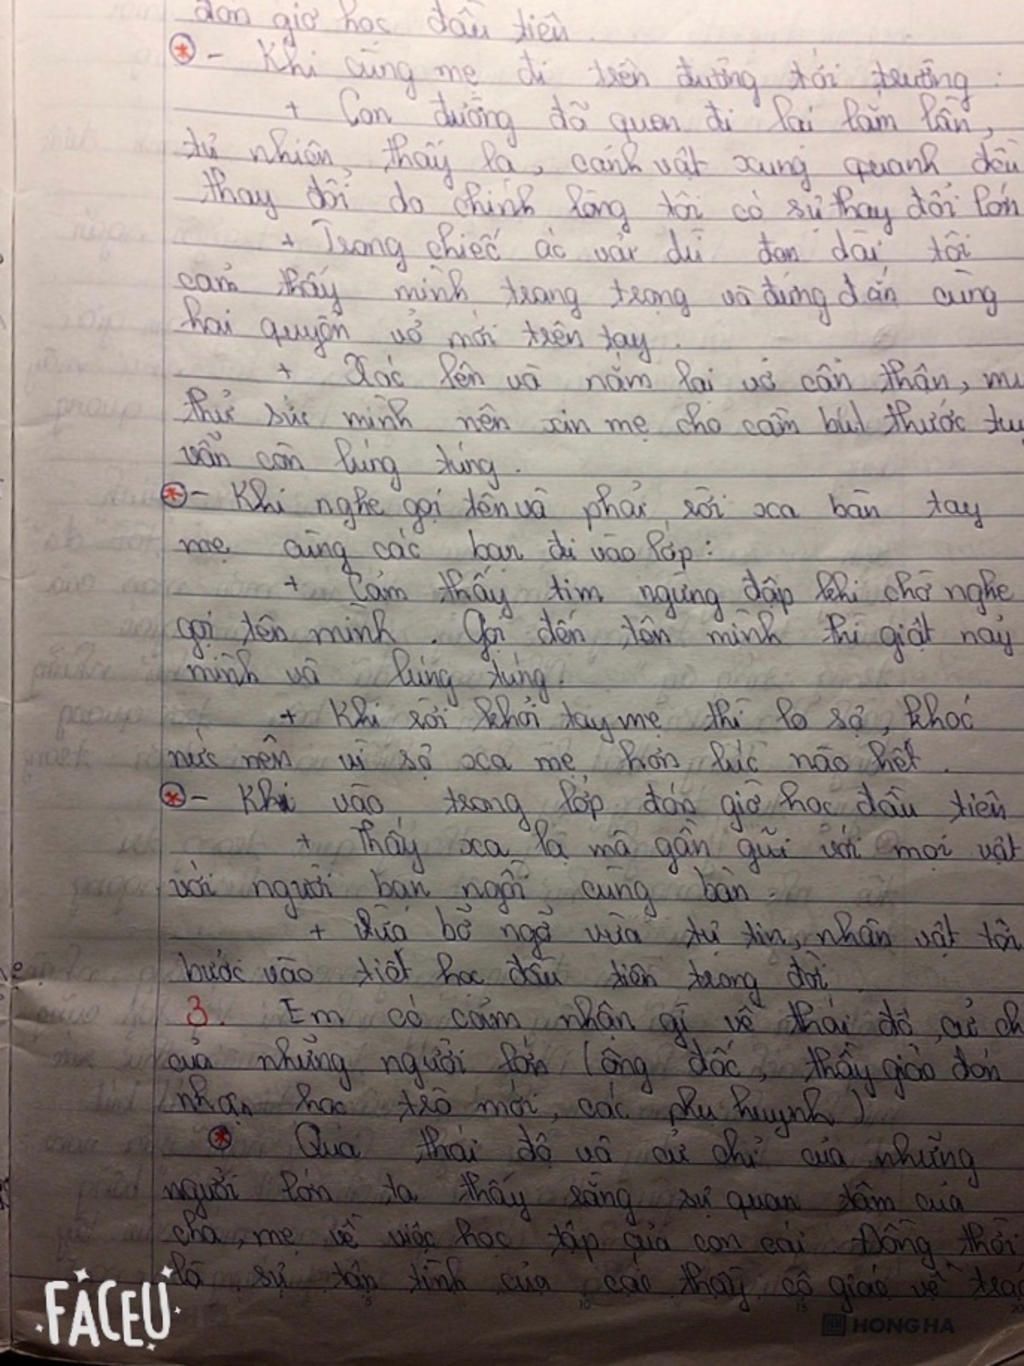 đón giờ học đầu tiên.
* - Khi cùng mẹ đi trên đường tới trường:
+ Con đường đã quen đi lại lắm lần,
tự nhiên thấy lạ, cảnh vật xung quanh đều
thay đổi do chính lòng tôi có sự thay đổi lớn
+ Trong chiếc áo vải dù đen dài tôi
cảm thấy mình trang trọng và đứng đắn cùng
hai quyển vở mới trên tay.
+ Xốc lên và nắm lại vở cẩn thận, mu
thử sức mình nên xin mẹ cho cầm bút thước tuy
vẫn còn lúng túng.
* - Khi nghe gọi tên và phải rời xa bàn tay
mẹ cùng các bạn đi vào lớp:
+ Cảm thấy tim ngừng đập khi chờ nghe
gọi tên mình. Gọi đến tên mình thì giật nảy
mình và lúng túng.
+ Khi rời khỏi tay mẹ thì lo sợ, khóc
nức nên vì sợ xa mẹ hơn lúc nào hết.
* - Khi vào trong lớp đón giờ học đầu tiên
+ Thấy xa lạ mà gần gũi với mọi vật
với người bạn ngồi cùng bàn.
+ Vừa bỡ ngỡ vừa tự tin, nhân vật tôi
bước vào tiết học đầu tiên trong đời
3. Em có cảm nhận gì về thái độ, cử ch
của những người lớn (ông đốc, thầy giáo đón
nhận học trò mới, các phụ huynh)
* Qua thái độ và cử chỉ của những
người lớn ta thấy rằng sự quan tâm của
cha, mẹ về việc học tập của con cái. Đồng thời
là sự tận tình của các thầy cô giáo về trác
FACEU
HONG HA